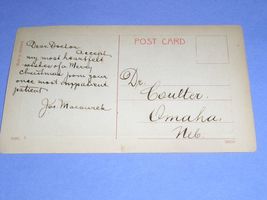 POST CARD
Dear Doctor
Accept
my most heartfelt
wishes of a Merry
Christmas from your
once most
patient
Jos. Macourek
Dr.
Coulter.
Omaha
Neb.